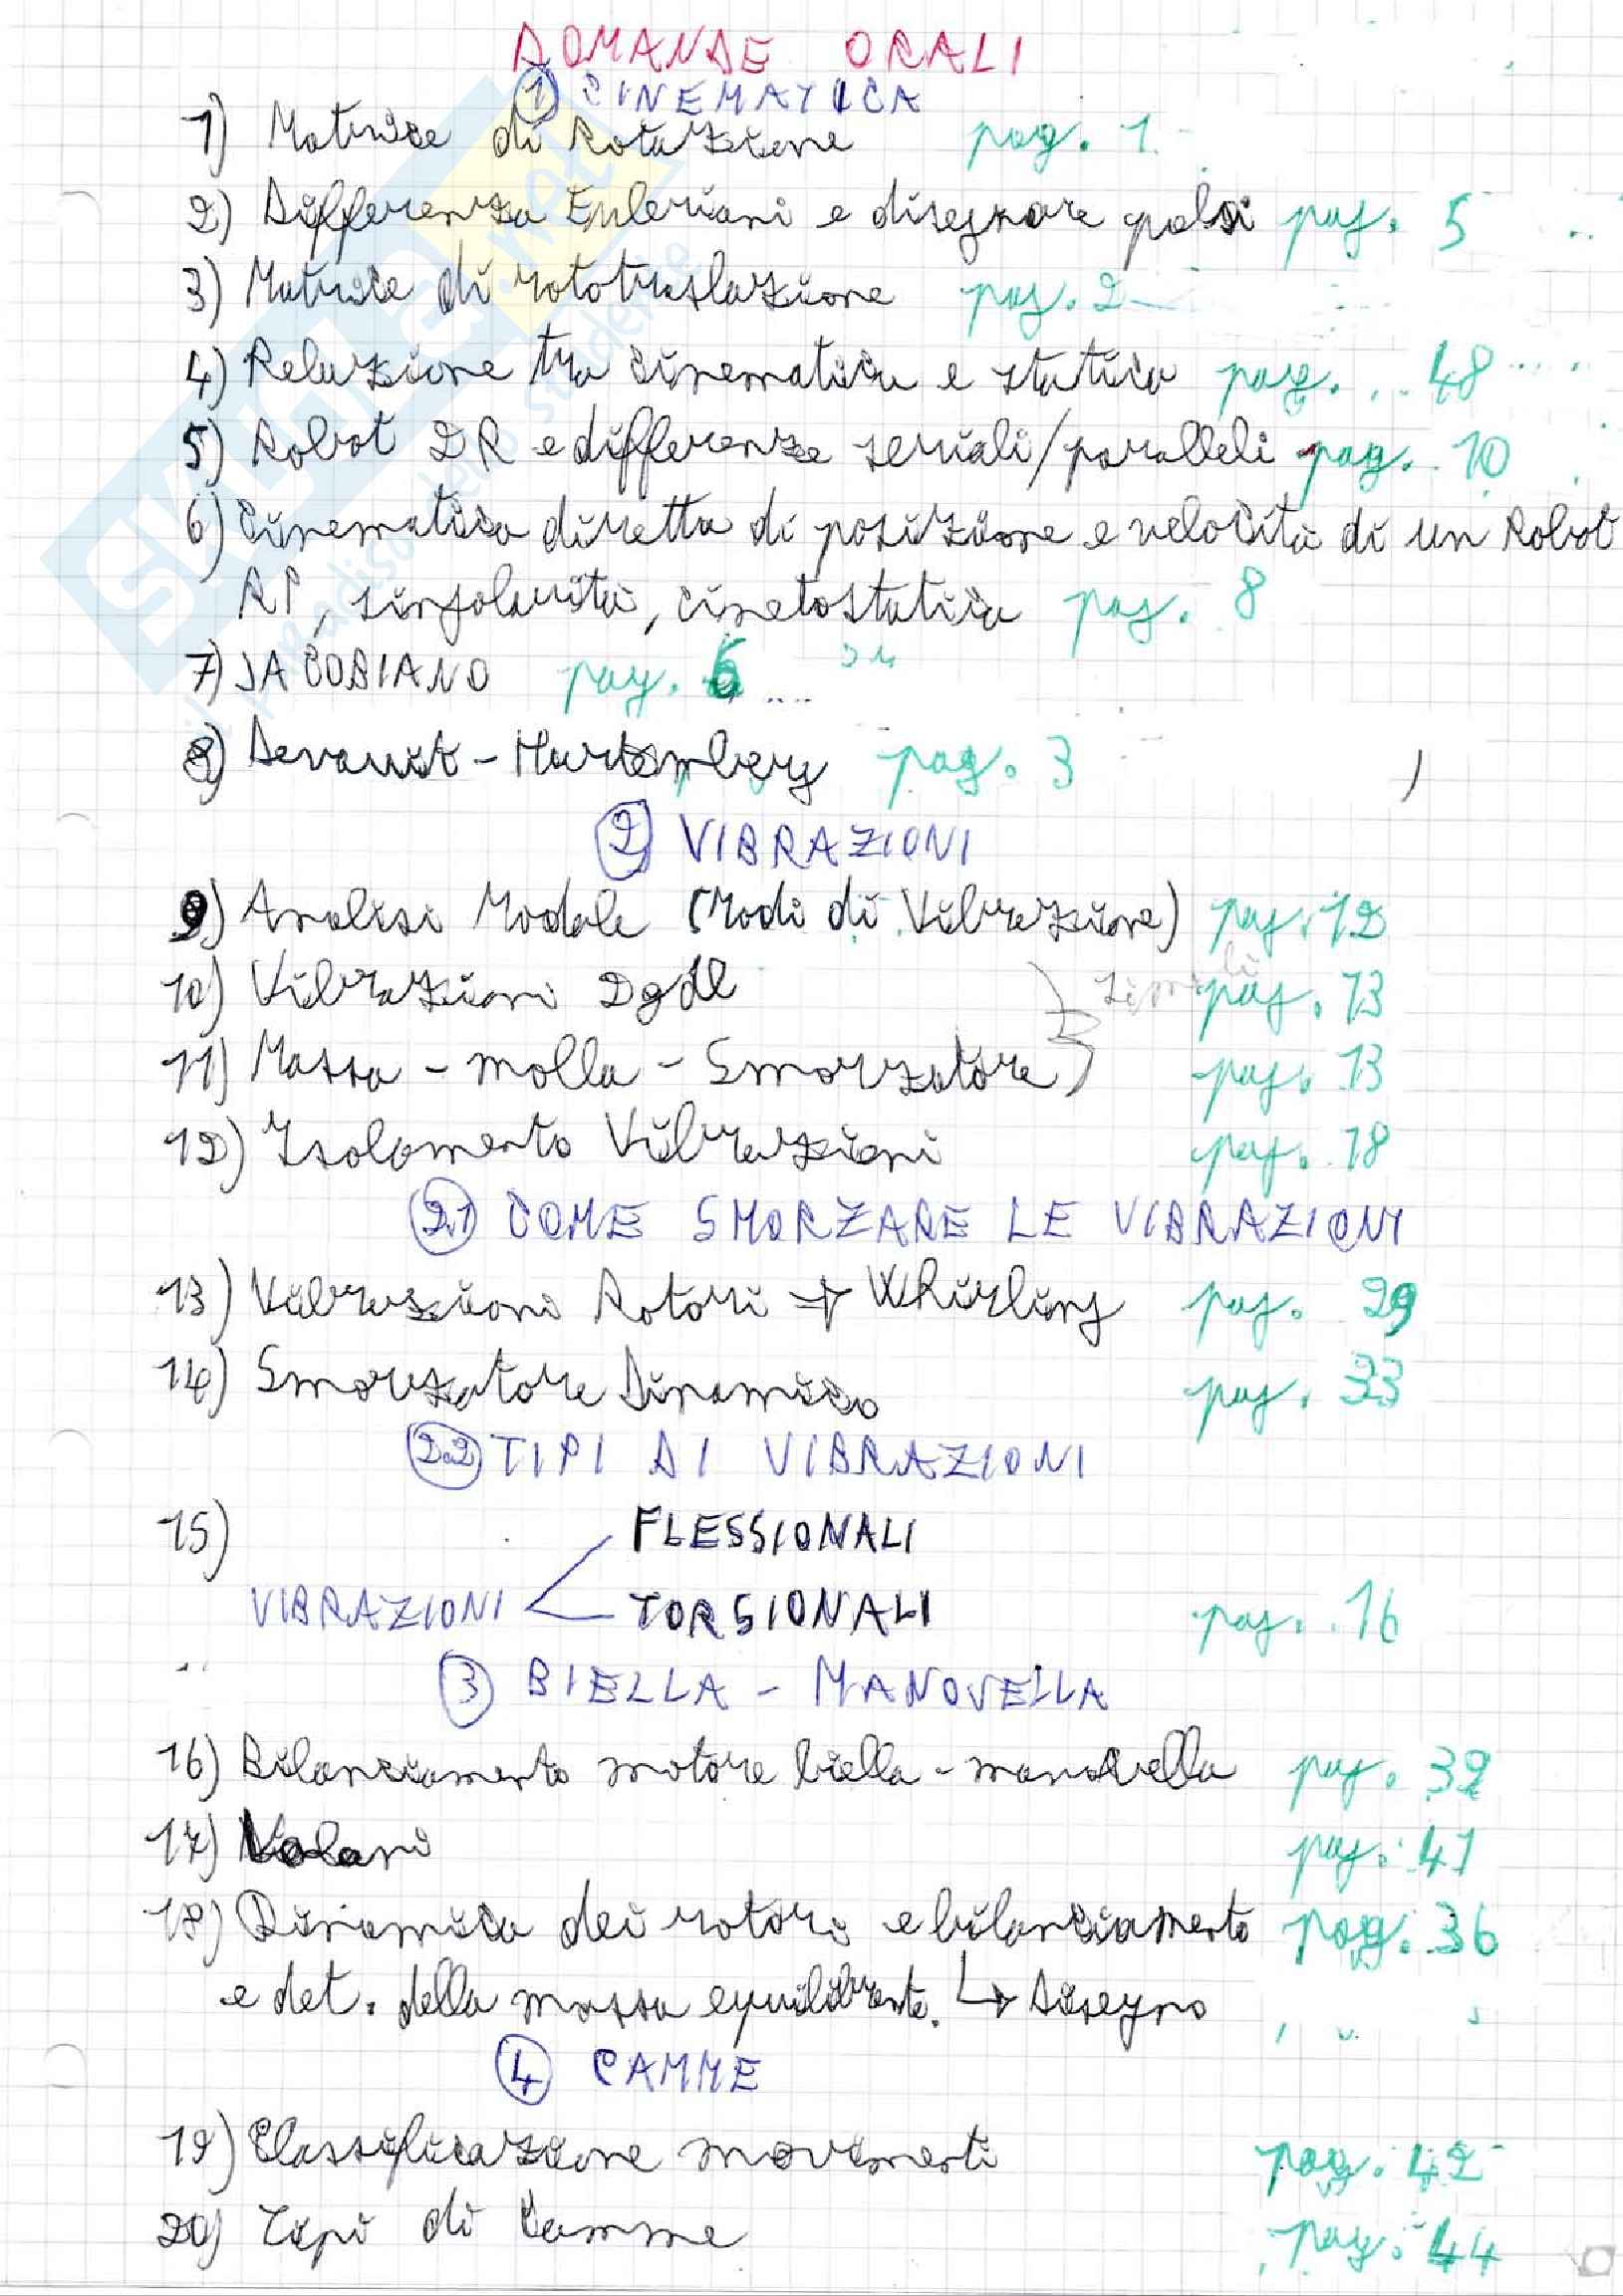 DOMANDE ORALI
1 CINEMATICA
1) Matrice di Rotazione pag. 1
2) Differenza Euleriani e disegnare polsi pag. 5
3) Matrice di rototraslazione pag. 2
4) Relazione tra cinematica e statica pag. 48
5) Robot 2R e differenze seriali/paralleli pag. 10
6) Cinematica diretta di posizione e velocità di un Robot
RP, singolarità, cinetostatica pag. 8
7) JACOBIANO pag. 6
8) Denavit - Hartemberg pag. 3
2 VIBRAZIONI
9) Analisi Modale (Modi di Vibrazione) pag. 12
10) Vibrazioni 2gdl pag. 13
11) Massa - molla - Smorzatore pag. 13
12) Isolamento Vibrazioni pag. 18
2.1 COME SMORZARE LE VIBRAZIONI
13) Vibrazioni Rotori → Whirling pag. 29
14) Smorzatore Dinamico pag. 33
2.2 TIPI DI VIBRAZIONI
15) FLESSIONALI
VIBRAZIONI TORSIONALI pag. 16
3 BIELLA - MANOVELLA
16) Bilanciamento motore biella - manovella pag. 32
17) Volani pag. 41
18) Dinamica dei rotori e bilanciamento pag. 36
e det. della massa equilibrante. ↳ Disegno
4 CAMME
19) Classificazione movimenti pag. 42
20) Tipi di Camme pag. 44
SKUOLA.net
il paradiso dello studente